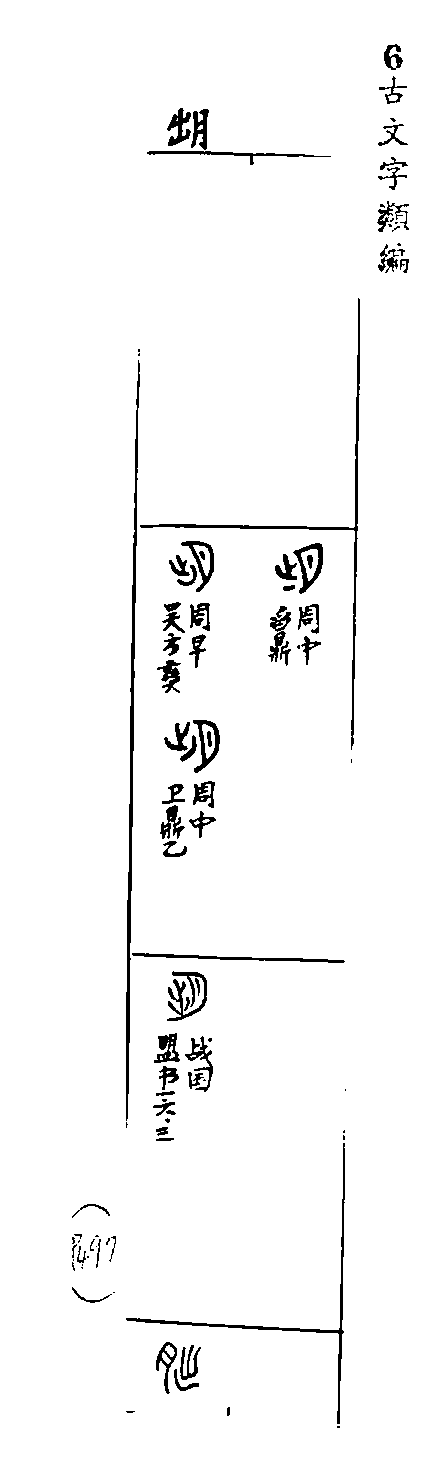 6古文字類編
朏
周中
舀鼎
周早
吴方彝
周中
卫鼎乙
战国
盟书一六·三
(P497)